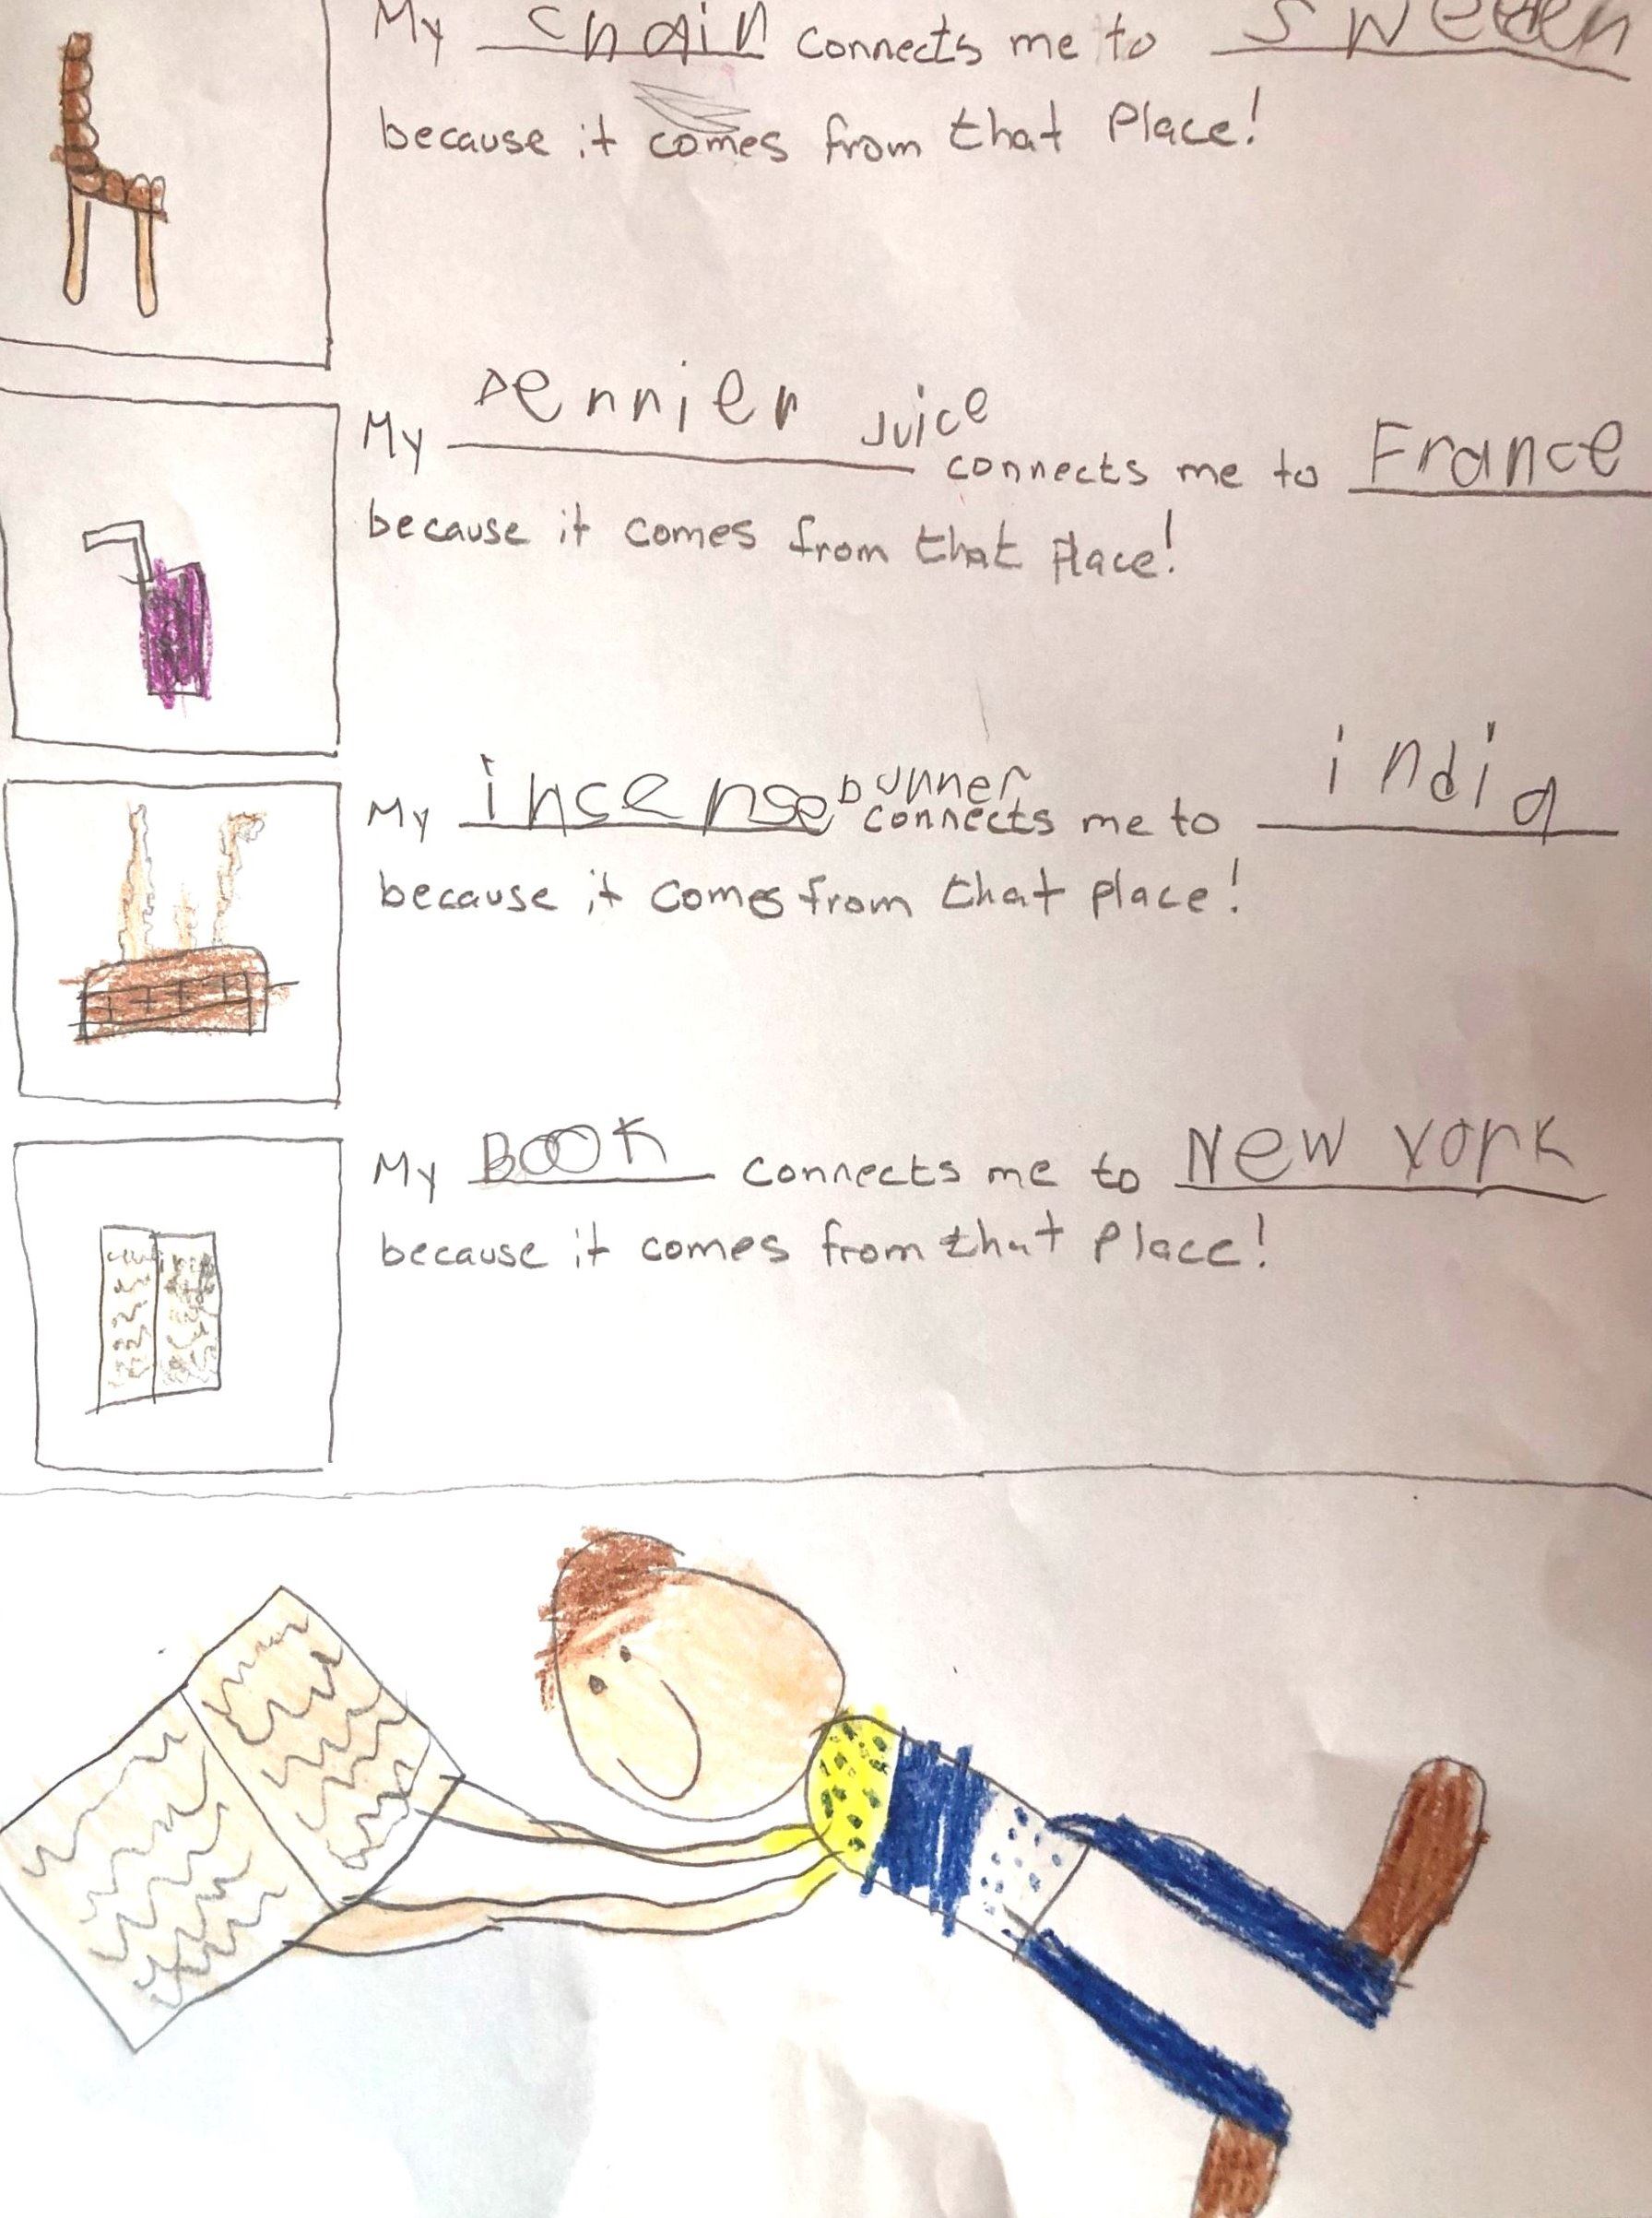 My chair connects me to Sweden
because it comes from that Place!
My Perrier Juice connects me to France
because it comes from that Place!
My incense burner connects me to india
because it comes from that place!
My Book connects me to New York
because it comes from that Place!